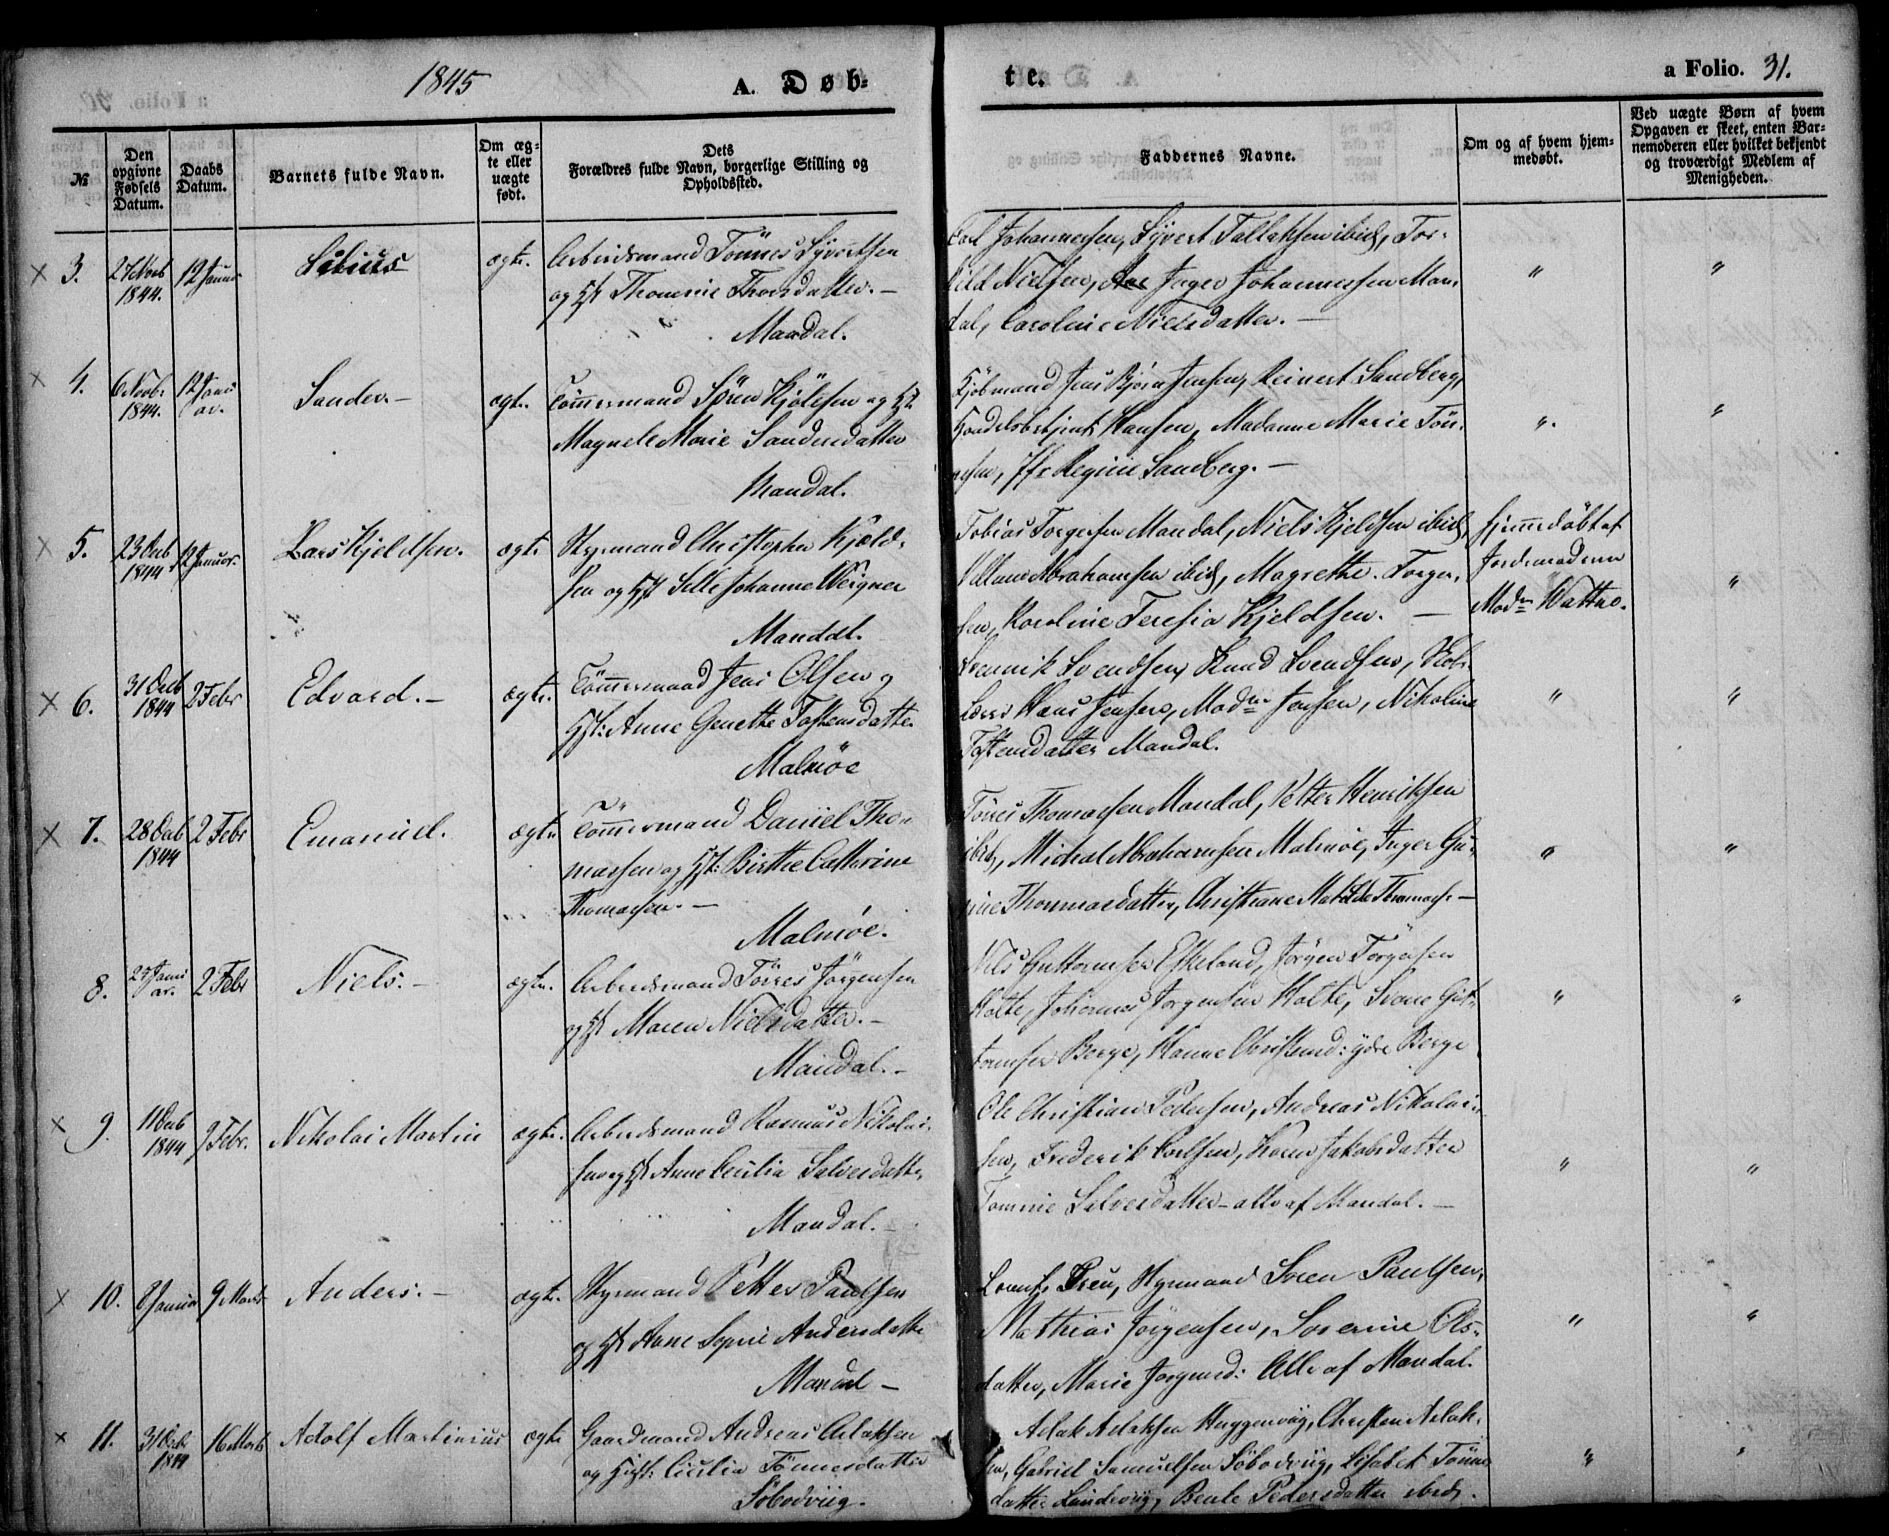 1845
A. Døb=
te.
a Folio. 31.
№
Den opgivne Fødsels Datum.
Daabs Datum.
Barnets fulde Navn.
Om æg-te eller uægte født.
Dets Forældres fulde Navn, borgerlige Stilling og Opholdssted.
Faddernes Navne.
Om og af hvem hjem-medøbt.
Ved uægte Børn af hvem Opgaven er skeet, enten Bar-nemoderen eller hvilket bekjendt og troværdigt Medlem af Menigheden.
3. 27 Novb 1844. 12 Januar ægte.
Arbeidsmand Tönnes Syvertsen
og Hst Thomine Thorsdatter.-
Mandal.
Carl Johannessen, Syvert Tallaksen ibid, Tor-
kild Nielsen, Inger Johannessen Man-
dal, Caroline Nielsdatter.-
" "
4. 6 Novb. 1844. 12 Janu ar. Sander.- ægte.
Tömmermand Sören Kjölesen og Hst
Magnele Marie Sandersdatter
Mandal.
Kjöbmand Jens Björn Jensen, Reinert Sandberg,
Handelsbetjent Hansen, Madamme Marie Tön-
nesen, Jfr Regine Sandberg.-
" "
5. 23 Decb 1844 12 Januar. Lars Kjeldsen. ægte
Styrmand Christopher Kjeld-
sen og Hst Johanne Weigner
Mandal.
Tobias Torgersen Mandal, Niels Kjeldsen ibid,
Abrahamsen ibid, Magrethe Torger-
sen, Karoline Teresia Kjeldsen.-
Hjemmedöbt af
Jordemoderen
Mad: Wattne.
"
6. 31 Decb 1844 2 Febr Edvard.- ægte.
Tömmermand Jens Olsen og
Hst: Anne Genette Tostensdatter
Malmöe
Svendsen, Knud Svendsen,
Hans Jensen, Madme Jensen, Nikoline
Tostensdatter Mandal.
" "
7. 28 Decb 1844 2 Febr Emanuel. ægte.
Tömmermand Daniel Tho-
massen og Hst: Birthe Cathrine
Thomassen.-
Malmöe.
Törres Thomassen Mandal, Petter Henriksen
ibid, Michal Abrahamsen Malmöe, Inger Gu-
rine Thommasdatter, Christiane Matilde Thomas.-
" "
8. 27 Janu ar. 2 Febr Niels.- ægte.
Arbeidsmand Törres Jörgensen
og Hst Maren Nielsdatter.-
Mandal.-
Nils Guttormsen Eskeland, Jörgen Törgersen
Holte, Johannes Jörgensen Holte, Svane Gut-
tormsen Berge, Hanne Christensd: ydre Berge
" "
9. 11 Decb 1844 9 Febr. Nikolai Martin ægte.
Arbeidsmand Rasmus Nikolai-
sen og Hst Anne Cecilia Salvesdatter
Mandal.-
Ole Christian Pedersen, Andreas Nikolai-
sen, Frederik Carlsen, Karen Jakobsdatter
Tomine Salvesdatter - alle af Mandal.-
" "
10. 8 Januar 9 Marts Anders.- ægte.
Styrmand Petter Paulsen
og Hst Anne Sopie Andersdatter
Mandal -
Styrmand Sören Paulsen,
Mathias Jörgensen, Sörine Ols-
datter, Marie Jörgensd: Alle af Mandal.
" "
11. 31 Decb 1844 16 Marts Adolf Martinius ægte
Gaardmand Andreas Aslaksen
og Hust: Cicilia Tönnesdatter
Söbodviig.
Aslak Aslaksen Haggenviig, Christen Aslak-
sen, Gabriel Samuelsen Söbodviig, Lisabet Tönnes
datter Landeviig, Bente Pedersdatter ibid.
" "